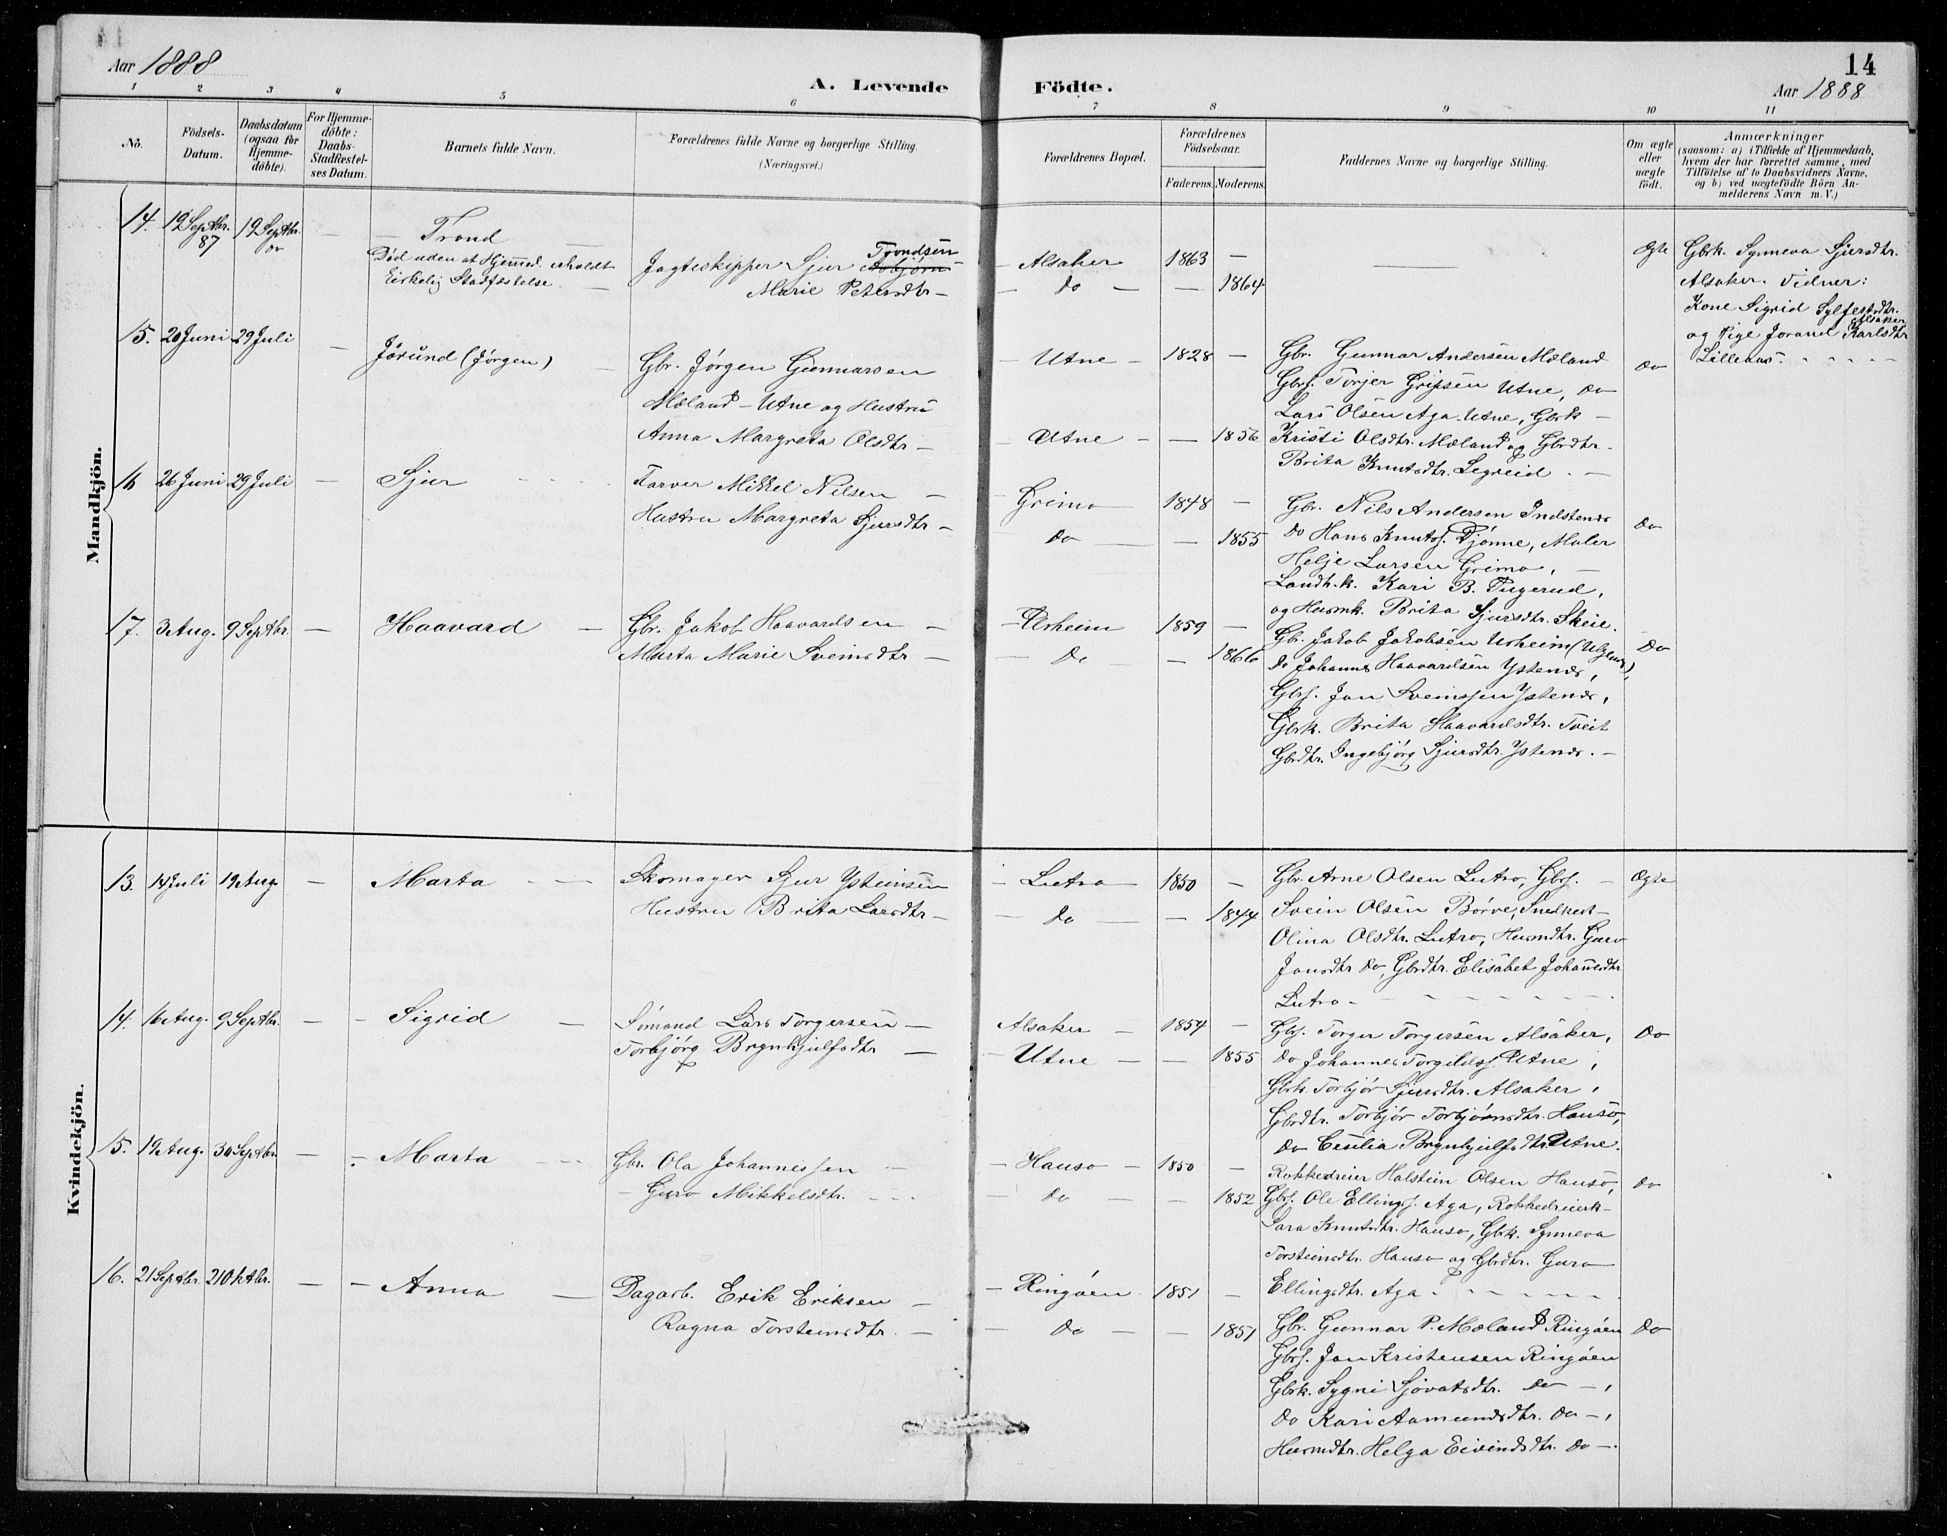 Aar 1888
A. Levende
Födte.
14
Aar 1888
1 2 3 4 5 6 7 8 9 10 11
No.
Födsels-
Datum.
Daabsdatum
(ogsaa for
Hjemme-
döbte).
For Hjemme-
döbte:
Daabs-
Stadfæstel-
ses Datum.
Barnets fulde Navn.
Forældrenes fulde Navne og borgerlige Stilling.
(Næringsvei.)
Forældrenes Bopæl.
Forældrenes
Födselsaar.
Faderens. Moderens.
Faddernes Navne og borgerlige Stilling.
Om ægte
eller
uægte
födt.
Anmærkninger
(saasom: a) i Tilfælde af Hjemmedaab,
hvem der har forrettet samme, med
Tilföielse af to Daabsvidners Navne,
og b) ved uægtefödte Börn An-
melderens Navn m. V.)
Mandkjön.
14. 19 Septbr. 87 19 Septbr. do
Trond
Död uden at Hjemmed. erholdt
Kirkelig Stadfæstelse
Jagteskipper Sjur Trondsen
Marie Petersdtr
Alsaker 1863
do 1864
Ægte
Gbrk. Synneva Sjursdtr.
Alsaker. Vidner:
Kone Sigrid Sylfestsdtr.
Alsaker
og Pige Jorand Karlsdtr
Lillenæs.
15. 20 Juni 29 Juli
Jörund (Jörgen)
Gbr. Jörgen Gunnarsen
Mæland - Utne og Hustru
Anna Margreta Olsdtr
Utne 1828
Utne 1856
Gbr. Gunnar Andersen Mæland
Gbrs. Torjer Gripsen Utne, do
Lars Olsen Aga Utne, Gbrk
Kristi Olsdtr. Mæland og Gbrdtr.
Brita Knutsdtr. Segreid.
do
16 26 Juni 29 Juli
Sjur
Farver Mikkel Nilsen
Hustru Margreta Sjursdtr
Grimo 1848
do 1855
Gbr. Nils Andersen Indstenæs
do Hans Knuts. Djönne, Maler
Helje Larsen Grimo,
Landh.k. Kari B. Tugerud,
og Husmk. Brita Sjursdtr. Skeie.
do
17. 3 Aug. 9 Septbr.
Haavard
Gbr. Jakob Haavardsen
Marta Marie Sveinsdtr
Urheim 1859
do 1866
Gbr. Jakob Jakobsen Urheim
do Johannes Haavardsen Ystenæs,
Gbrs. Jon Sveinssen Ystenæs,
Gbrk. Brita Haavardsdtr. Tveit
Gbrdtr. Ingebjörg Sjursdtr. Ystenæs.
do
Kvindekjön.
13. 14 Juli 19 Aug.
Marta
Skomager Sjur Ysteinsen
Hustru Brita Larsdtr
Lutro 1850
do 1844
Gbr. Arne Olsen Lutro, Gbrs.
Svein Olsen Börve, Snedkerk
Olina Olsdtr. Lutro, Husmdtr. Guro
Jonsdtr do, Gbrdtr. Elisabet Johansdtr
Lutro
Ægte
14. 16 Aug. 9 Septbr.
Sigrid
Sömand Lars Torgersen
Torbjörg Brynhjulfsdtr
Alsaker 1854
Utne 1855
Gbrs. Torger Torgersen Alsaker,
do Johannes Torgilds. Utne,
Gbrk. Torbjör Sjursdtr. Alsaker,
Gbrdtr. Torbjör Torbjörnsdtr. Hauso,
do Cecilia Brynhjulfsdtr. Utne.
do
15. 19 Aug. 30 Septbr.
Marta
Gbr. Ola Johannessen
Guro Mikkelsdtr.
Hauso 1850
do 1852
Rokkedreier Halstein Olsen Hauso,
Gbrs. Ole Ellings. Aga, Rokkedreierk
Sara Knutsdtr. Hauso, Gbrk. Synneva
Torsteinsdtr. Hauso og Gbrdtr. Guro
Ellingsdtr. Aga
do
16. 21 Septbr. 21 Oktbr.
Anna
Dagarb. Erik Eriksen
Ragna Torsteinsdtr.
Ringöen 1851
do 1851
Gbr. Gunnar P. Mæland Ringöen
Gbrs. Jon Kristensen Ringöen
Gbrk. Sygni Sjovatsdtr. do,
do Kari Aamundsdtr. do,
Husmdtr. Helga Eivindsdtr. do.
do